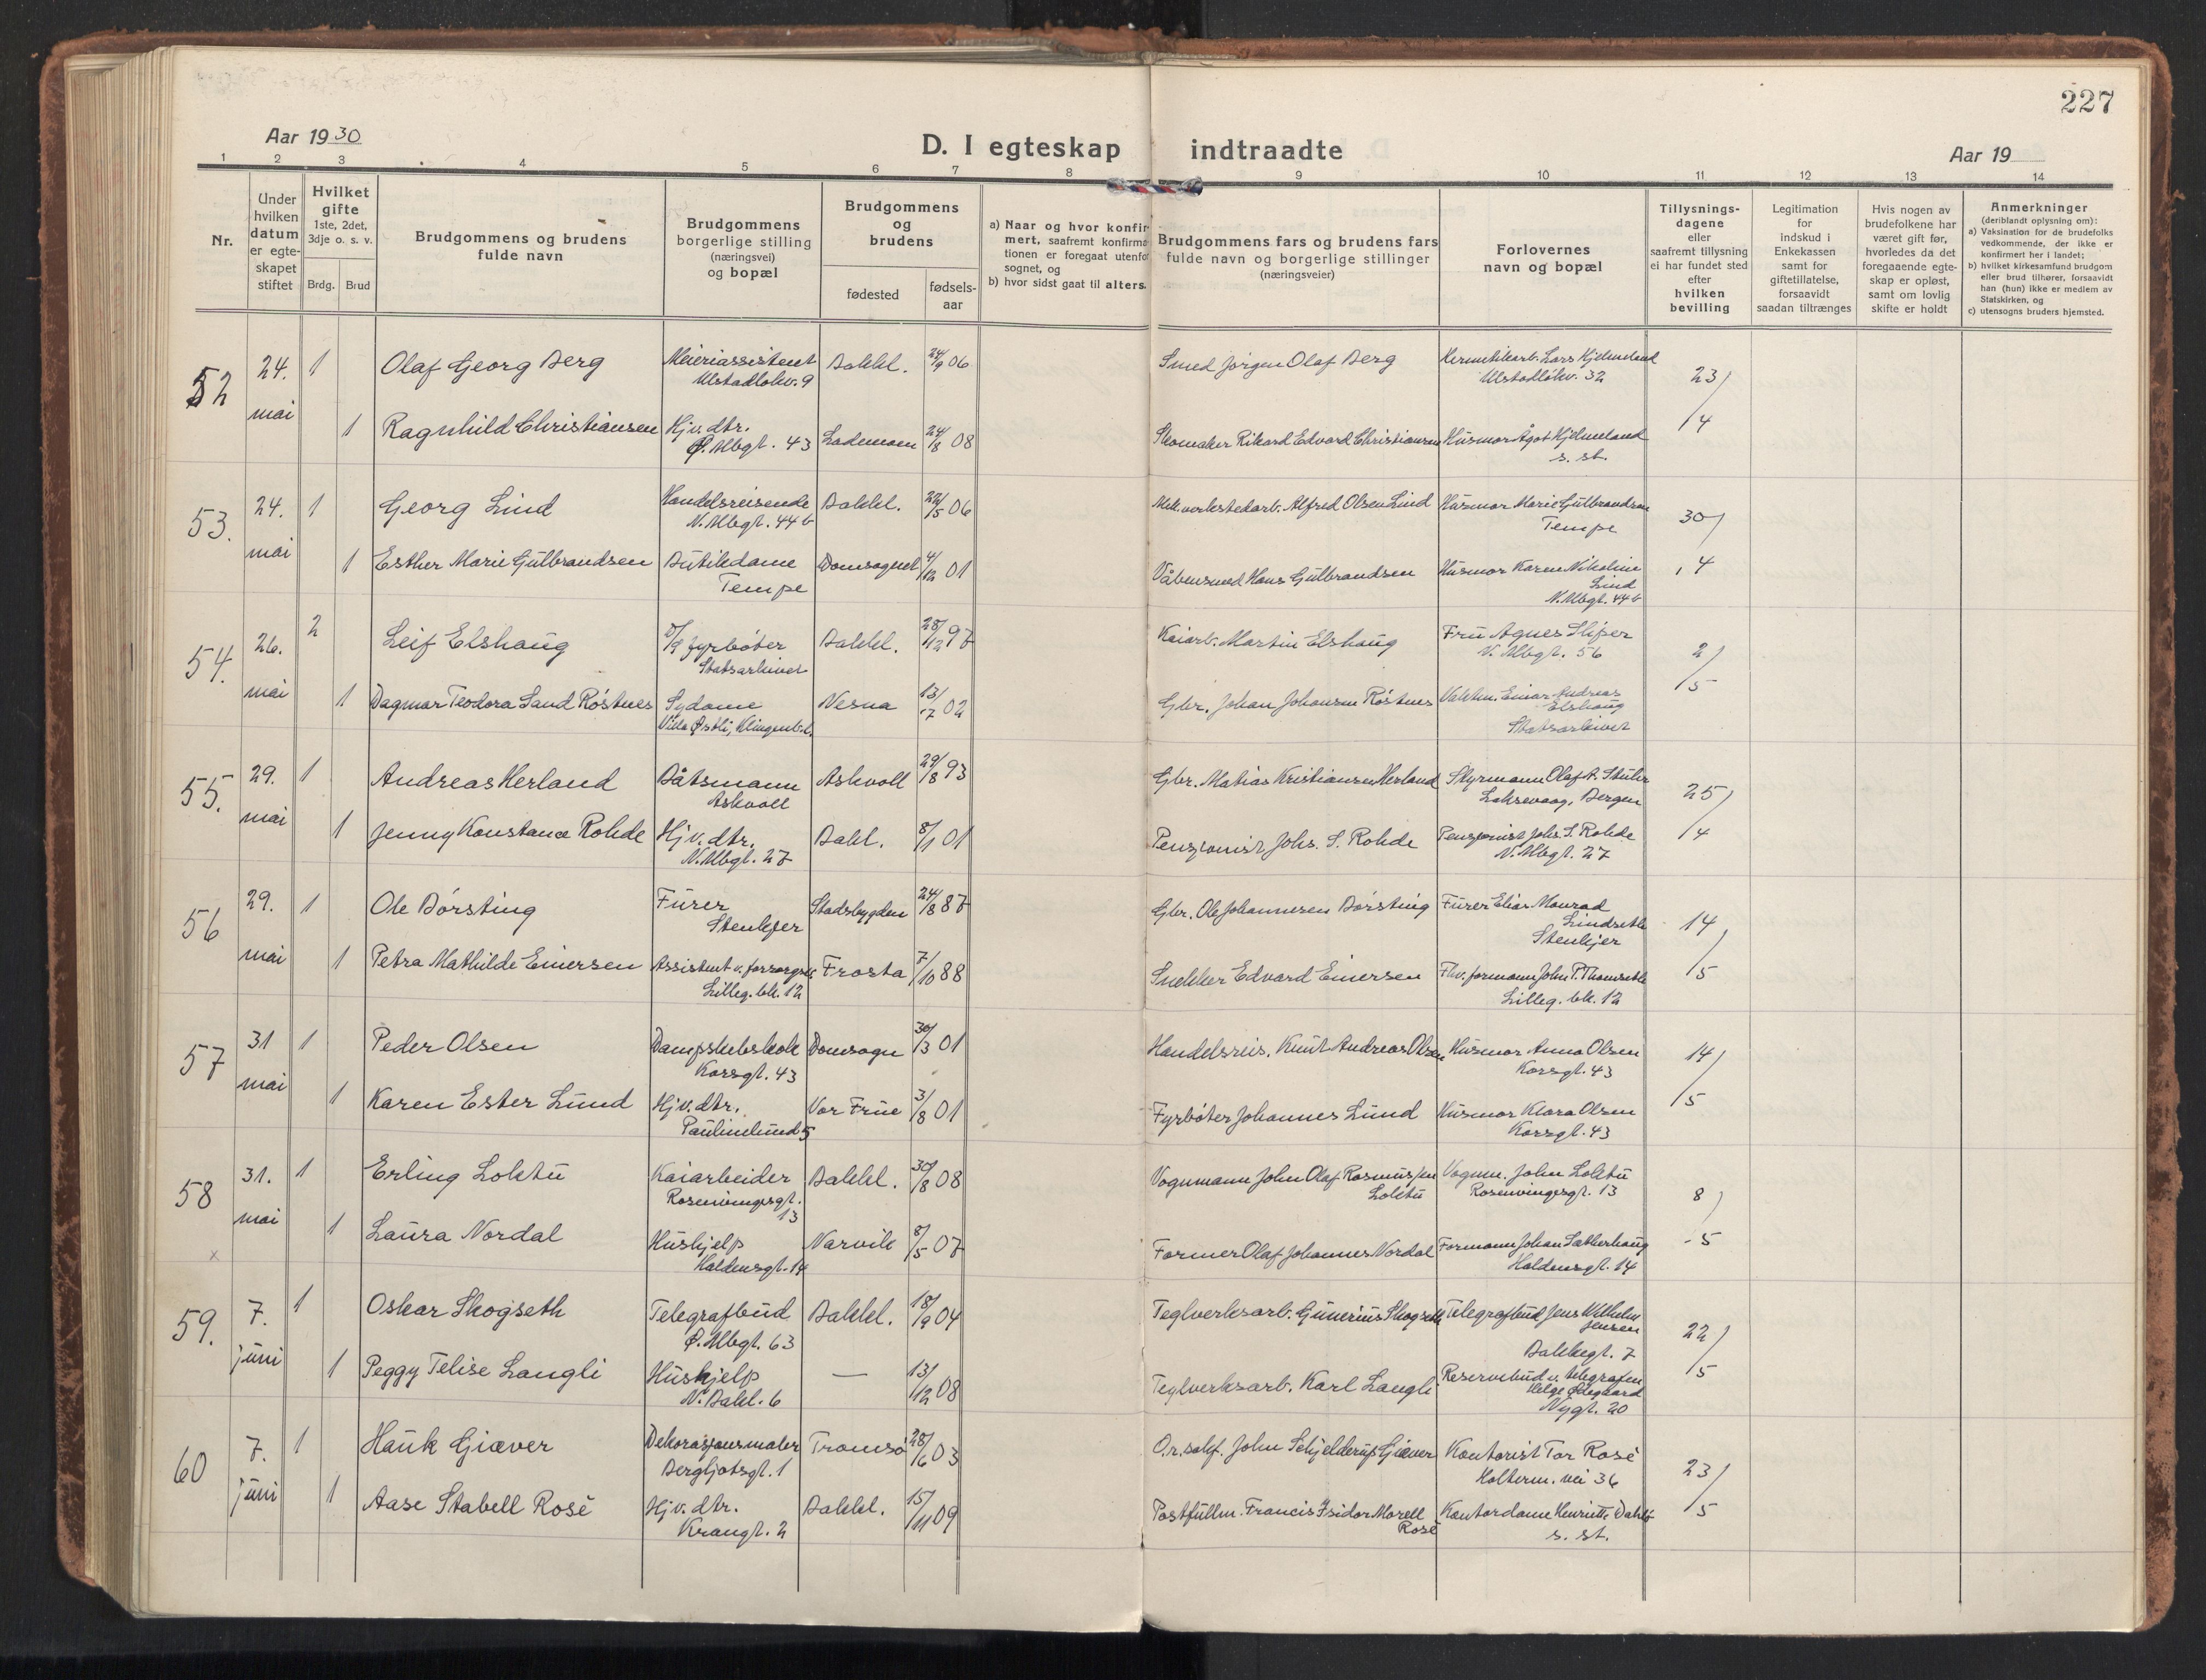 227
Aar 1930
D. I egteskap indtraadte
Aar 19
1 2 3 4 5 6 7 8 9 10 11 12 13 14
Nr.
Under hvilken datum er egteskapet stiftet
Hvilket gifte
1ste, 2det, 3dje o. s. v.
Brdg. Brud
Brudgommens og brudens fulde navn
Brudgommens borgerlige stilling (næringsvei) og bopæl
Brudgommens og brudens
fødested
fødselsaar
a) Naar og hvor konfirmert, saafremt konfirmationen er foregaat utenfor sognet, og
b) hvor sidst gaat til alters.
Brudgommens fars og brudens fars fulde navn og borgerlige stillinger (næringsveier)
Forlovernes navn og bopæl
Tillysningsdagene eller saafremt tillysning ei har fundet sted efter hvilken bevilling
Legitimation for indskud i Enkekassen samt for giftetillatelse, forsaavidt saadan tiltrænges
Hvis nogen av brudefolkene har været gift før, hvorledes da det foregaaende egteskap er opløst, samt om lovlig skifte er holdt
Anmerkninger
(deriblandt oplysning om):
a) Vaksination for de brudefolks vedkommende, der ikke er konfirmert her i landet;
b) hvilket kirkesamfund brudgom eller brud tilhører, forsaavidt han (hun) ikke er medlem av Statskirken, og
c) utensogns bruders hjemsted.
52 24. mai 1 Olaf Georg Berg Meieriassistent Ulstadløkv. 9 Bakkl. 24/9 06 Smed Jørgen Olaf Berg Hermetikarb. Lars Hjelmeland Ulstadløkv. 32 23/4
1 Ragnhild Christiansen Hjv. dtr. Ø. Mbgt. 43 Lademoen 24/8 08 Skomaker Rikard Edvard Christiansen Husmor Ågot Hjelmeland s. st.
53. 24. mai 1 Georg Lind Handelsreisende N. Mbgt. 44 b Bakkl. 22/5 06 Mek. verkstedarb. Alfred Olsen Lind Husmor Marie Gulbrandsen Tempe 30/4
1 Esther Marie Gulbrandsen Butikdame Tempe Domsognet 4/12 01 Våbensmed Hans Gulbrandsen Husmor Karen Nikoline Lind N. Mbgt. 44 b
54. 26. mai 2 Leif Elshaug fyrbøter Statsarkivet Bakkl. 28/12 97 Kaiarb. Martin Elshaug Fru Agnes Sliper N. Mbgt. 56 2/5
1 Dagmar Teodora Sand Røstnes Sydame Villa Østli, Klingenb. Nesna 13/7 02 Gbr. Johan Johansen Røstnes Vaktm. Einar Andreas Elshaug Statsarkivet
55. 29. mai 1 Andreas Herland Båtsmann Askvoll Askvoll 29/8 93 Gbr. Matias Kristiansen Herland Styrmann Olaf A. Laksevaag, Bergen 25/4
1 Jenny Konstance Rohde Hjv. dtr. N. Mbgt. 27 Bakl. 8/1 01 Pensjonist Johs. S. Rohde Pensjonist Johs. S. Rohde N. Mbgt. 27
56 29. mai 1 Ole Børsting Furer Stenkjer Stadsbygden 24/8 87 Gbr. Ole Johannesen Børsting Furer Elias Monrad Lindseth Stenkjer 14/5
1 Petra Mathilde Einersen Assistent v. Lilleg. bk. 12 Frosta 7/10 88 Snekker Edvard Einersen Fhv. formann John P. Thomseth Lilleg. bk. 12
57 31 mai 1 Peder Olsen Dampskibskok Korsgt. 43 Domsogn 30/3 01 Handelsreis. Knut Andreas Olsen Husmor Anna Olsen Korsgt. 43 14/5
1 Karen Ester Lund Hjv. dtr. Paulinelund 5 Vor Frue 3/8 01 Fyrbøter Johannes Lund Husmor Klara Olsen Korsgt. 43
58 31. mai 1 Erling Loktu Kaiarbeider Rosenvingesgt. 13 Bakkl. 30/8 08 Vognmann John Olaf Rasmussen Loktu Vognm. John Loktu Rosenvingesgt. 13 8/5
x 1 Laura Nordal Hushjelp Haldensgt. 14 Narvik 8/5 07 Former Olaf Johannes Nordal Formann Johan Sætherhaug Haldensgt. 14
59. 7. juni 1 Oskar Skogseth Telegrafbud Ø. Mbgt. 63 Bakkl. 18/9 04 Teglverksarb. Gunerius Skogseth Telegrafbud Jens Wilhelm Jensen Bakkegt. 7 22/5
1 Peggy Telise Langli Hushjelp N. Bakl. 6 — 13/12 08 Teglverksarb. Karl Langli Reservebud v. telegrafen Helge Ødegaard Nygt. 20
60 7. juni 1 Hauk Giæver Dekorasjonsmaler Bergljotsgt. 1 Tromsø 28/6 03 O.r.sakf. John Schjelderup Giæver Kontorist Tor Rosé Holterm. vei 36 23/5
1 Aase Stabell Rosé Hjv. dtr. Krangt. 2 Bakkl. 15/11 09 Postfullm. Francis Isidor Morell Rosé Kontordame Henriette Dahl s. st.